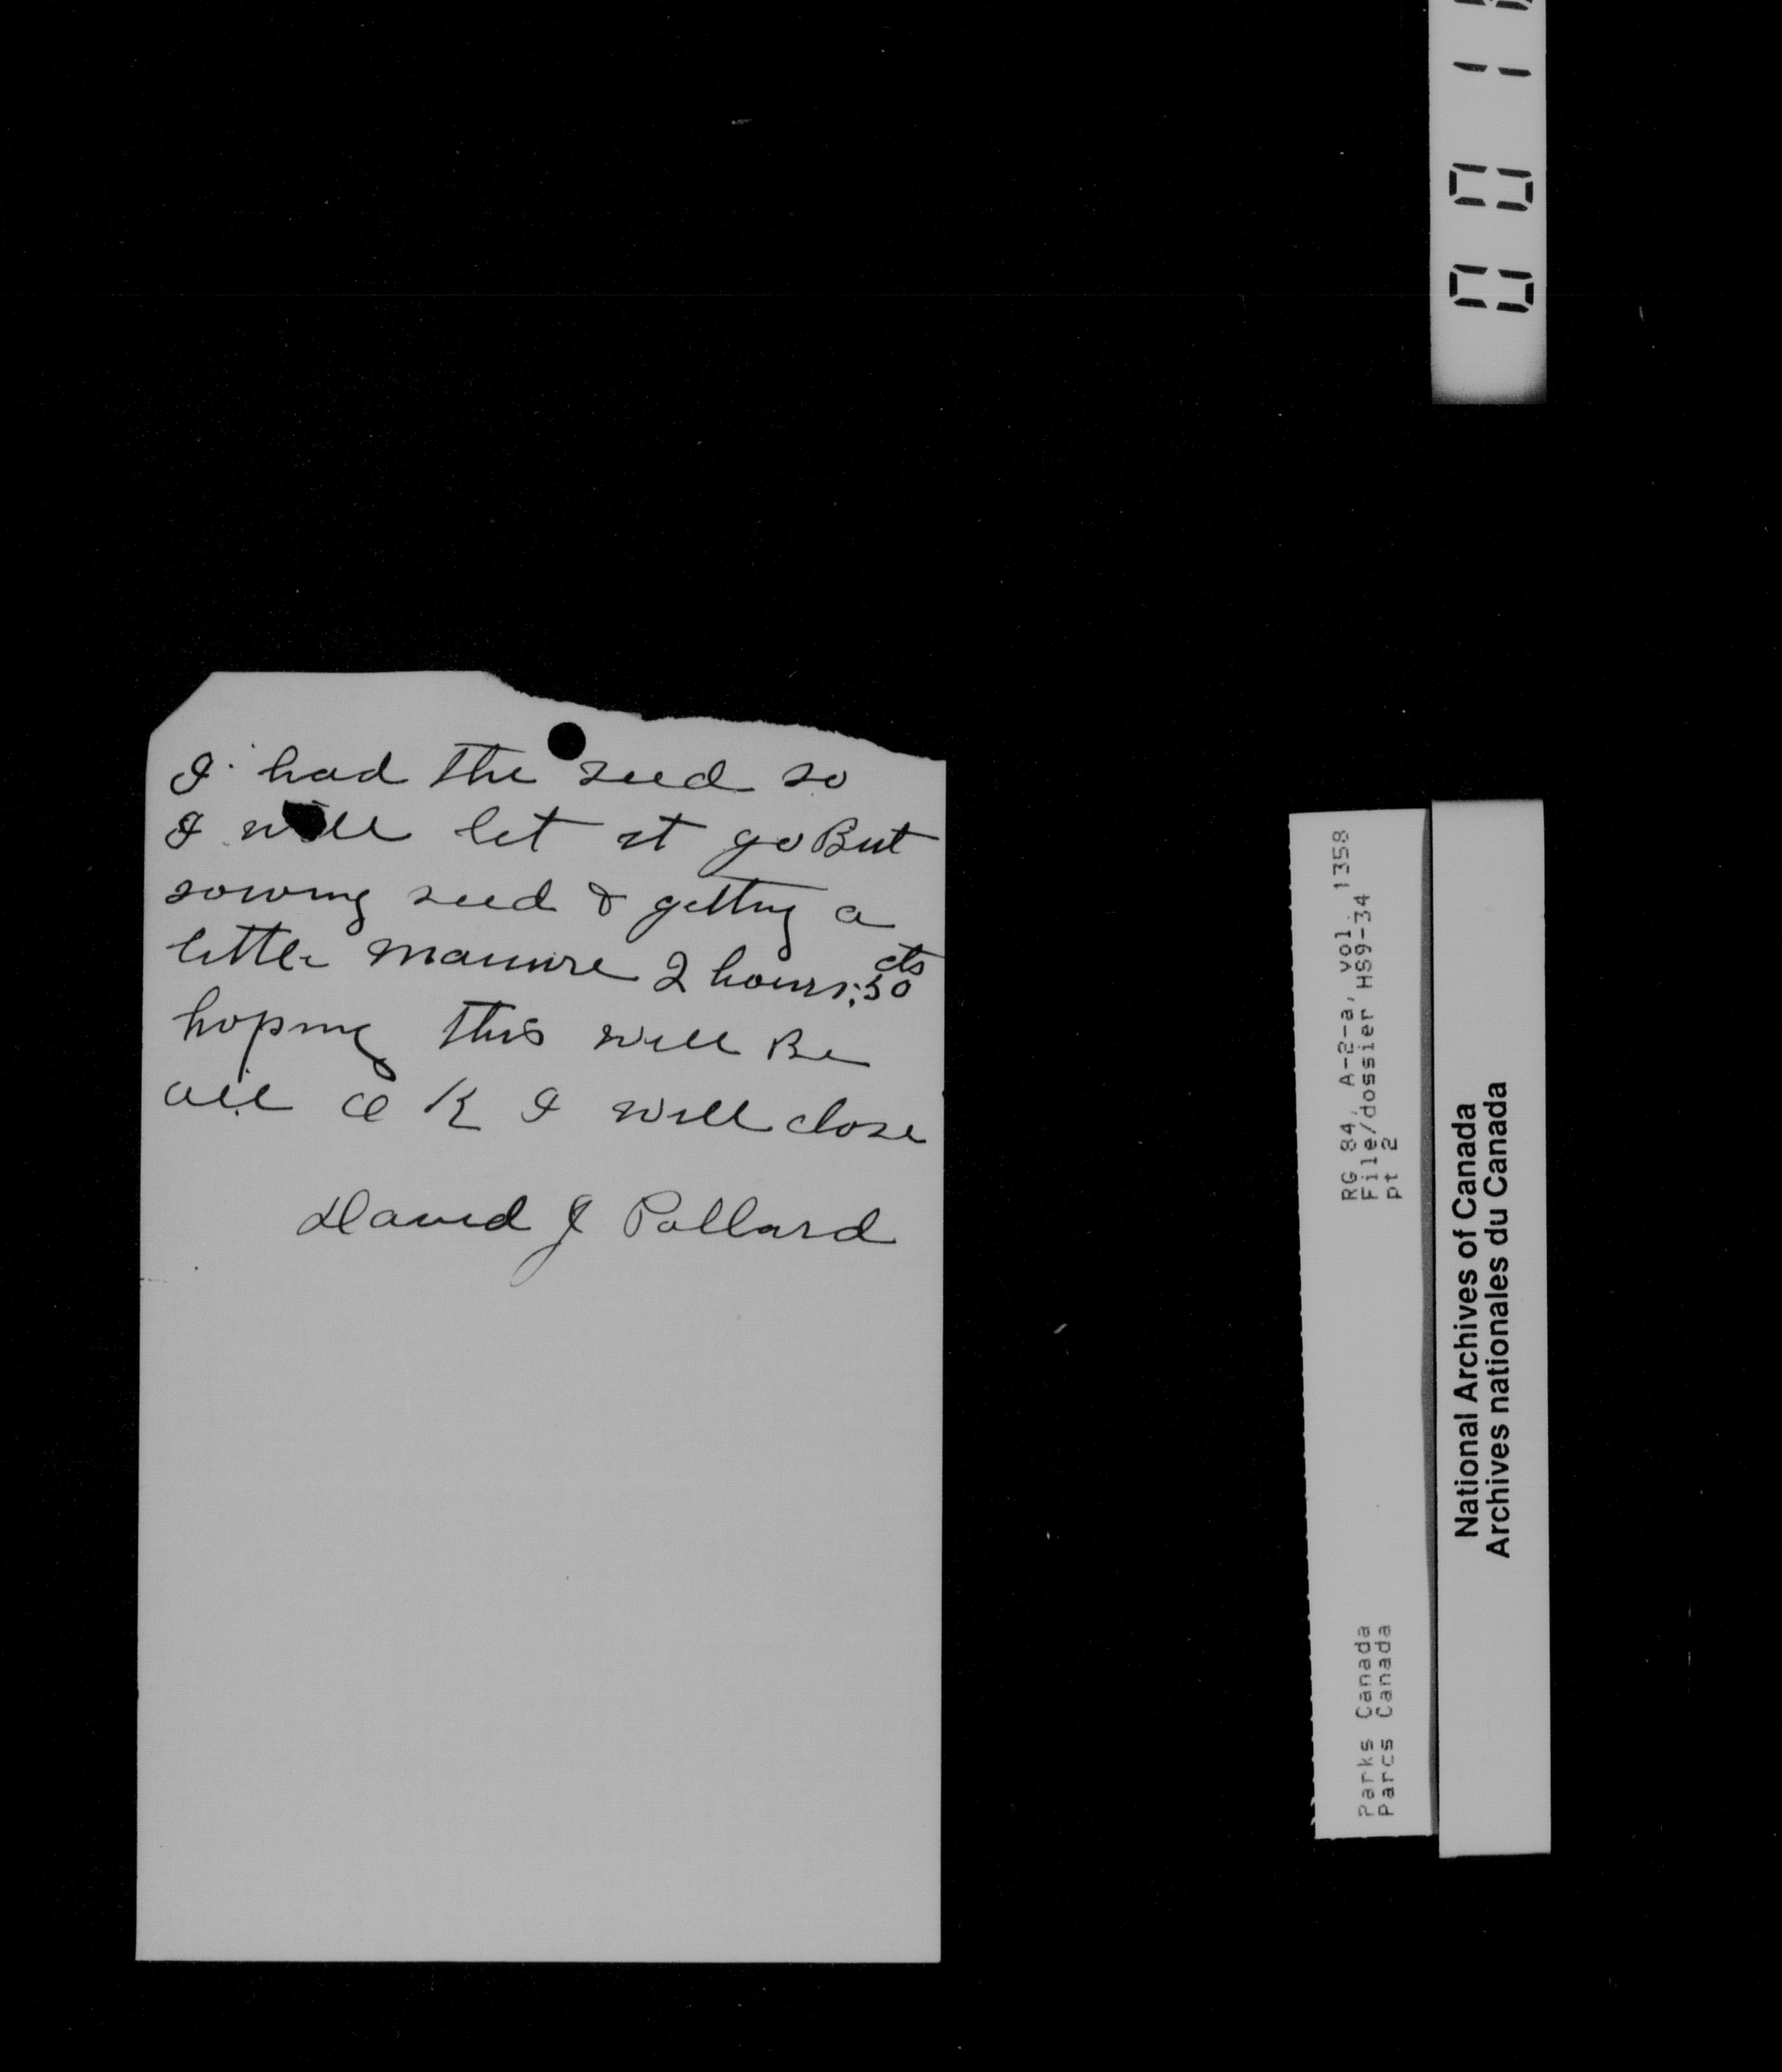 I had the seed so
I will let it go But
sowing seed & getting a
little manure 2 hours. 50 cts
hoping this will Be
all O K I will close
David J Pollard
RG 84, A-2-a, vol. 1358
File/dossier HS9-34
pt 2
Parks Canada
Parcs Canada
National Archives of Canada
Archives nationales du Canada
0 0 1